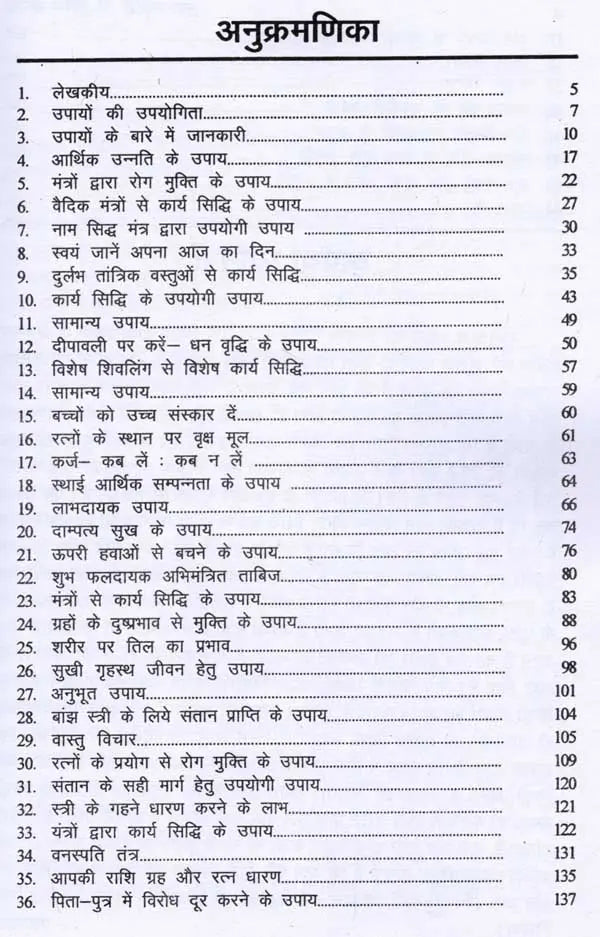 अनुक्रमणिका
1. लेखकीय 5
2. उपायों की उपयोगिता 7
3. उपायों के बारे में जानकारी 10
4. आर्थिक उन्नति के उपाय 17
5. मंत्रों द्वारा रोग मुक्ति के उपाय 22
6. वैदिक मंत्रों से कार्य सिद्धि के उपाय 27
7. नाम सिद्ध मंत्र द्वारा उपयोगी उपाय 30
8. स्वयं जानें अपना आज का दिन 33
9. दुर्लभ तांत्रिक वस्तुओं से कार्य सिद्धि 35
10. कार्य सिद्धि के उपयोगी उपाय 43
11. सामान्य उपाय 49
12. दीपावली पर करें– धन वृद्धि के उपाय 50
13. विशेष शिवलिंग से विशेष कार्य सिद्धि 57
14. सामान्य उपाय 59
15. बच्चों को उच्च संस्कार दें 60
16. रत्नों के स्थान पर वृक्ष मूल 61
17. कर्ज– कब लें : कब न लें 63
18. स्थाई आर्थिक सम्पन्नता के उपाय 64
19. लाभदायक उपाय 66
20. दाम्पत्य सुख के उपाय 74
21. ऊपरी हवाओं से बचने के उपाय 76
22. शुभ फलदायक अभिमंत्रित ताबिज 80
23. मंत्रों से कार्य सिद्धि के उपाय 83
24. ग्रहों के दुष्प्रभाव से मुक्ति के उपाय 88
25. शरीर पर तिल का प्रभाव 96
26. सुखी गृहस्थ जीवन हेतु उपाय 98
27. अनुभूत उपाय 101
28. बांझ स्त्री के लिये संतान प्राप्ति के उपाय 104
29. वास्तु विचार 105
30. रत्नों के प्रयोग से रोग मुक्ति के उपाय 109
31. संतान के सही मार्ग हेतु उपयोगी उपाय 120
32. स्त्री के गहने धारण करने के लाभ 121
33. यंत्रों द्वारा कार्य सिद्धि के उपाय 122
34. वनस्पति तंत्र 131
35. आपकी राशि ग्रह और रत्न धारण 135
36. पिता–पुत्र में विरोध दूर करने के उपाय 137